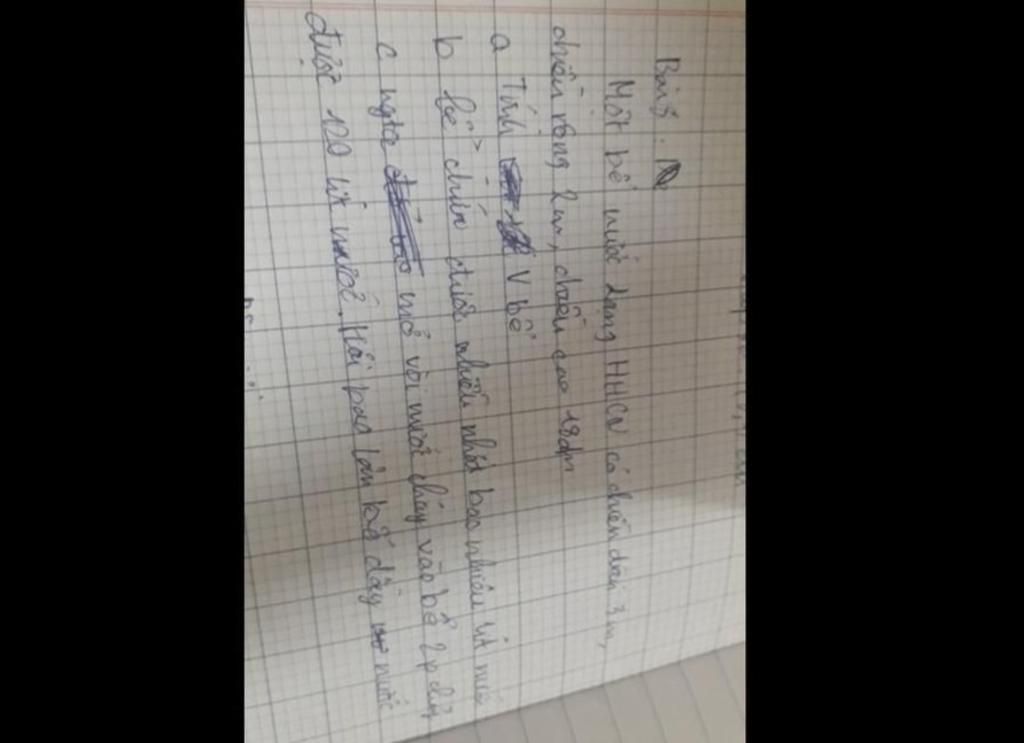 Bài 3.
Một bể nước dạng HHCN có chiều dài 3m,
chiều rộng 2m, chiều cao 18dm
a Tính V bể
b bể chứa được nhiều nhất bao nhiêu lít nước
c ngta mở vòi nước chảy vào bể 2p chảy
được 120 lít nước. Hỏi bao lâu bể đầy nước